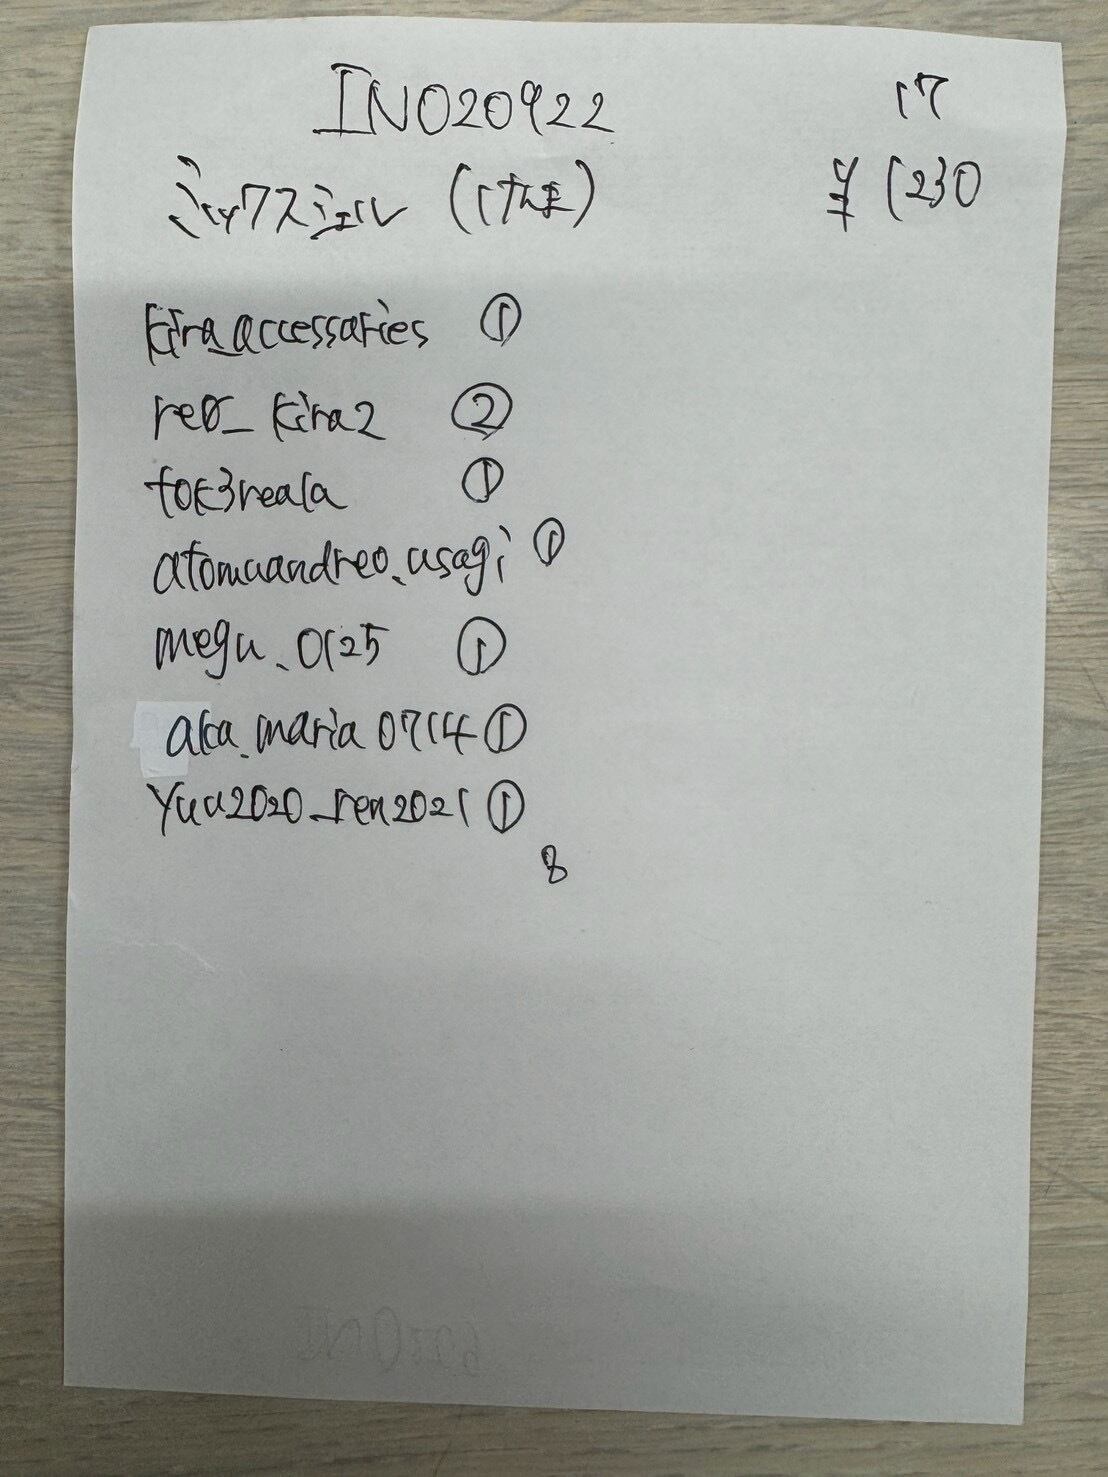 INO20922 17
ミックスシェル (けんま) ¥1230
kira_accessaries ①
reo_kira2 ②
tok3reala ①
atomuandreo.usagi ①
megu.0125 ①
aka.maria0714 ①
yuu2020_ren2021 ①
8